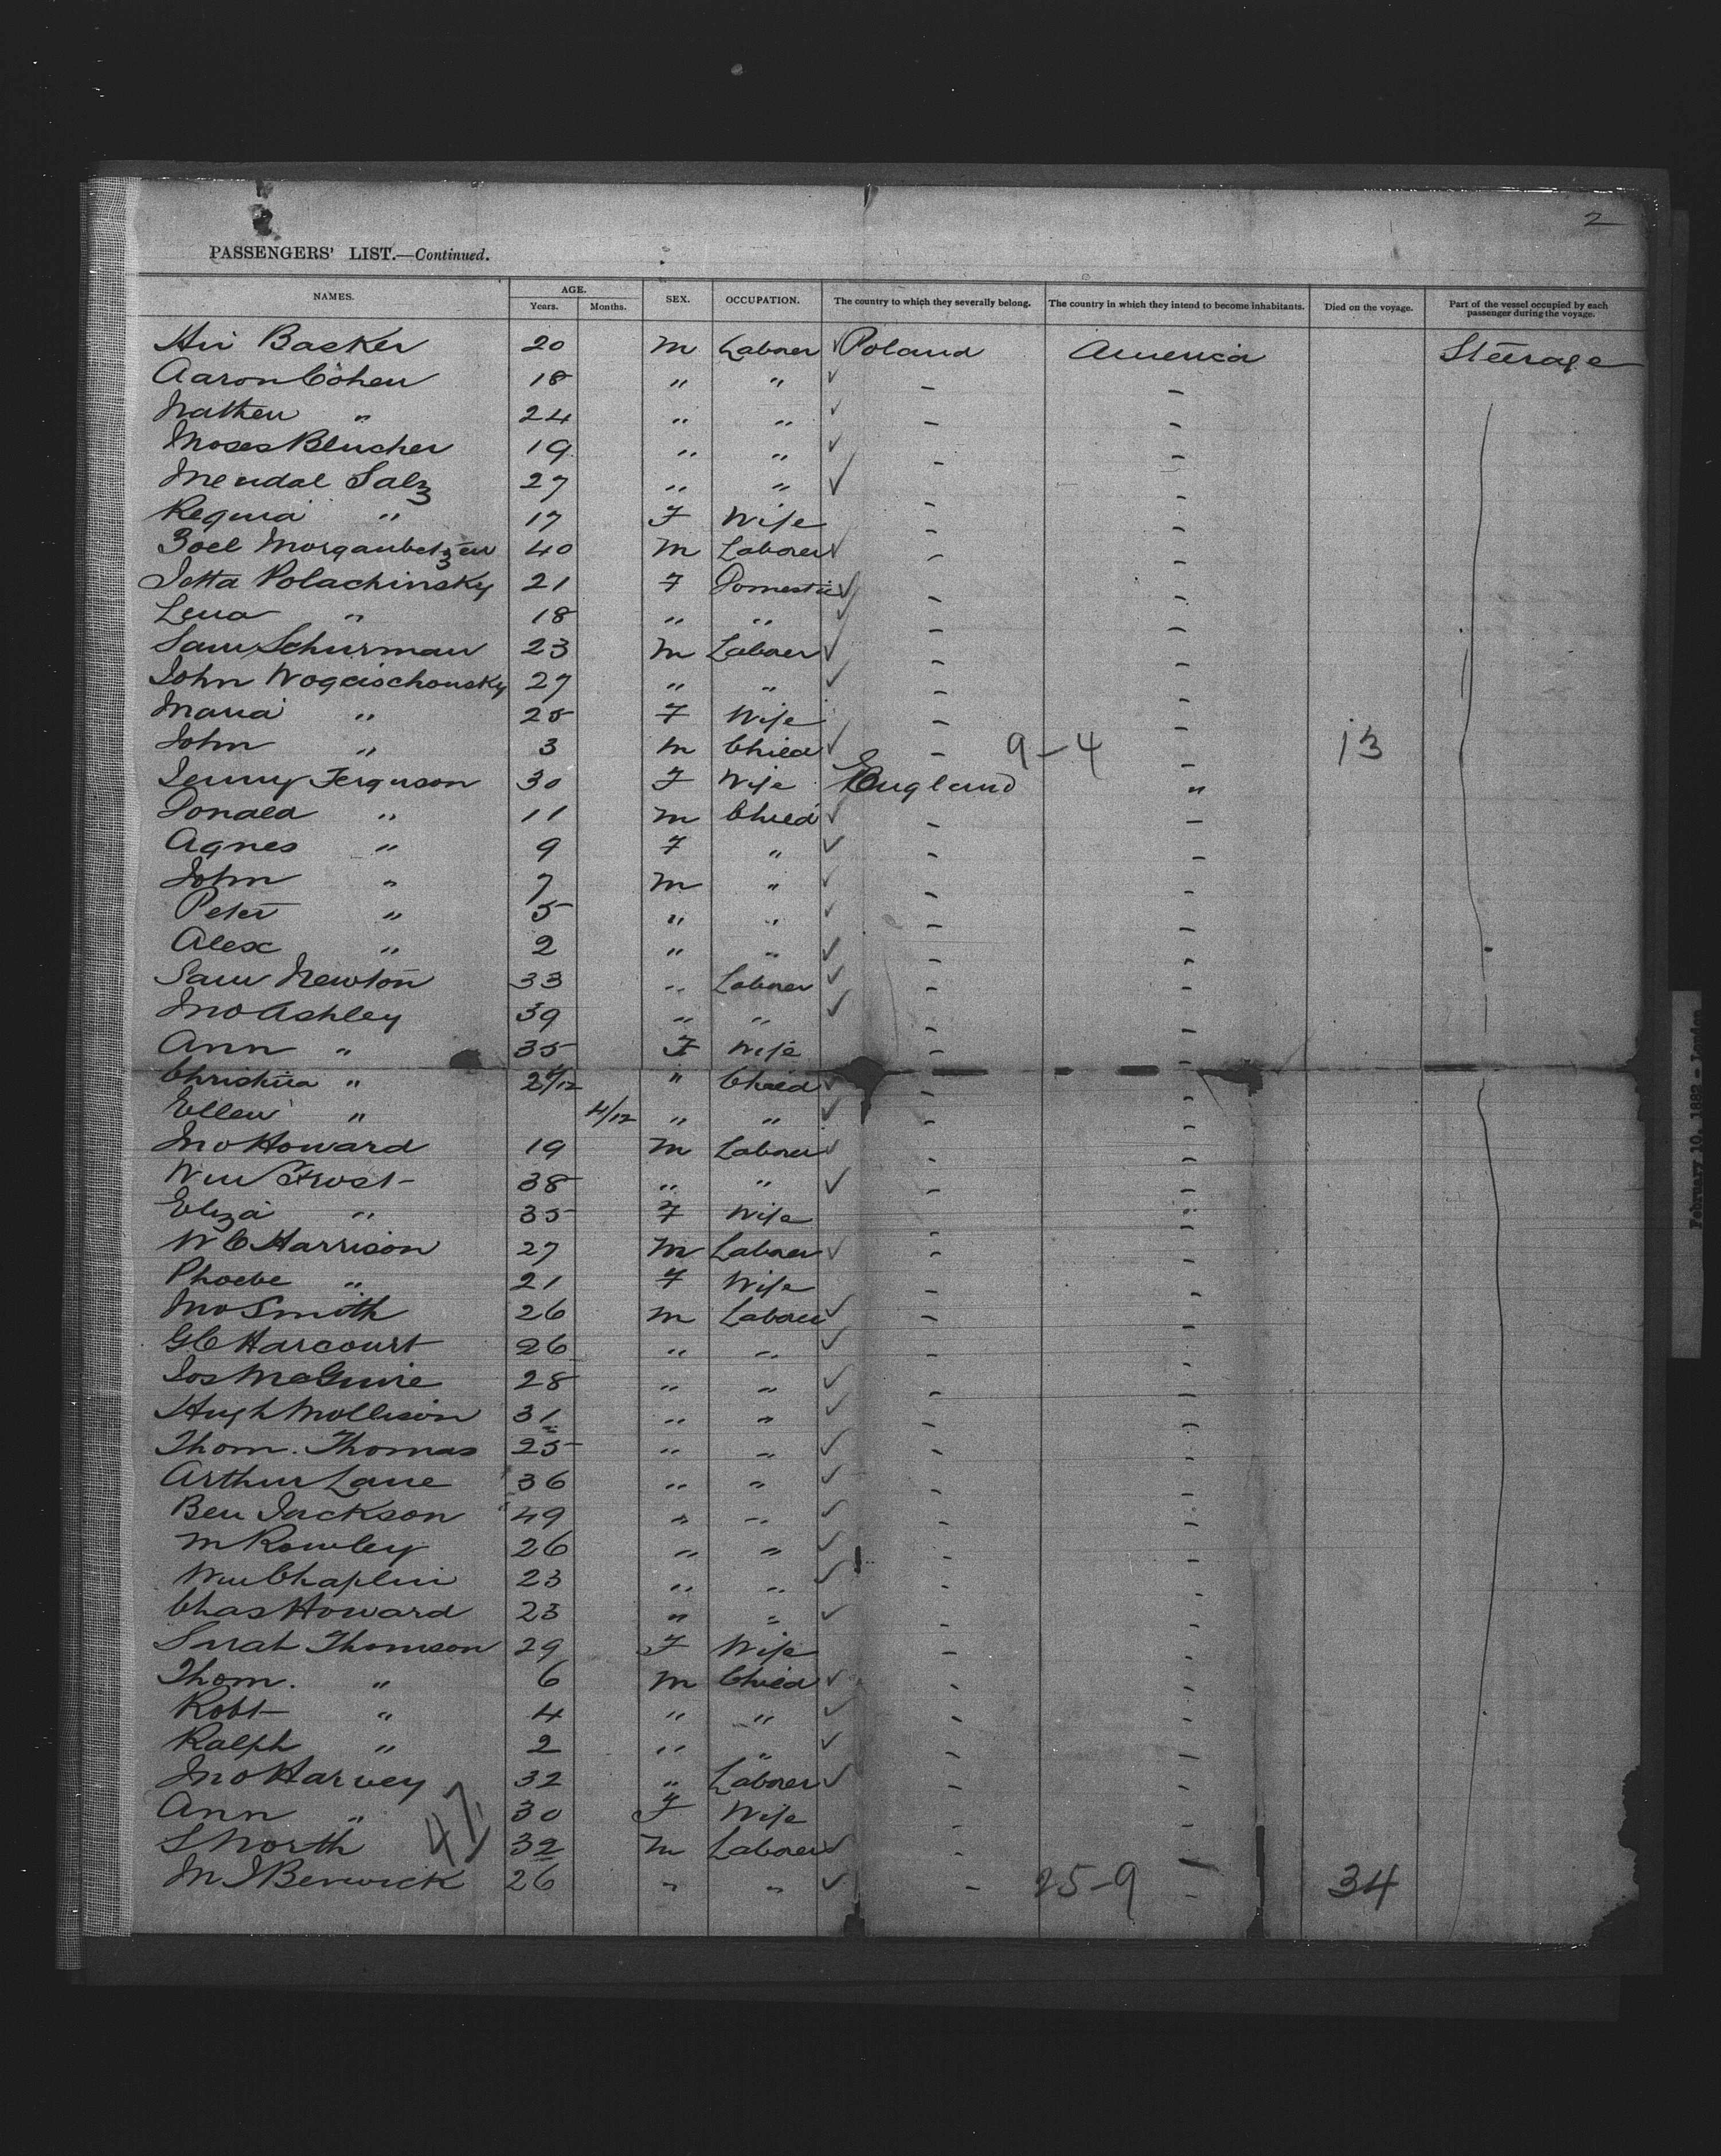 2
PASSENGERS' LIST.—Continued.
NAMES. AGE. Years. Months. SEX. OCCUPATION. The country to which they severally belong. The country in which they intend to become inhabitants. Died on the voyage. Part of the vessel occupied by each passenger during the voyage.
Basker 20 M Laborer ✓ Poland America Steerage
Aaron Cohen 18 " " ✓ - -
Nathen " 24 " " ✓ - -
Moses Blucher 19 " " ✓ - -
Mendal Salz 27 " " ✓ - -
Regina " 17 F Wife - -
Morganbetzen 40 M Laborer ✓ - -
Jetta Polachinsky 21 F Domestic ✓ - -
Lena " 18 " " ✓ - -
Sam Schurman 23 M Laborer ✓ - -
John Wogcischousky 27 " " ✓ - -
Maria " 25 F Wife - -
John " 3 M Child ✓ - 9-4 - 13
Jenny Ferguson 30 F Wife England "
Donald " 11 M Child ✓ - -
Agnes " 9 F " ✓ - -
John " 7 M " ✓ - -
Peter " 5 " " ✓ - -
Alex " 2 " " ✓ - -
Sam Newton 33 " Laborer ✓ - -
Jno Ashley 39 " " ✓ - -
Ann " 35 F Wife - -
Christina " " Child ✓ - -
Ellen " 4/12 " " ✓ - -
Jno Howard 19 M Laborer ✓ - -
Wm Frost 38 " " ✓ - -
Eliza " 35 F Wife - -
W C Harrison 27 M Laborer ✓ - -
Phoebe " 21 F Wife - -
Jno Smith 26 M Laborer ✓ - -
G C Harcourt 26 " " ✓ - -
Jos McGuire 28 " " ✓ - -
Hugh Mollison 31 " " ✓ - -
Thom. Thomas 25 " " ✓ - -
Arthur Lane 36 " " ✓ - -
Ben Jackson 49 " " ✓ - -
M Rowley 26 " " ✓ - -
Wm Chaplin 23 " " ✓ - -
Chas Howard 23 " " ✓ - -
Sarah Thomson 29 F Wife - -
Thom. " 6 M Child ✓ - -
Robt " 4 " " ✓ - -
Ralph " 2 " " ✓ - -
Jno Harvey 32 " Laborer ✓ - -
Ann " 30 F Wife - -
S North 47 32 M Laborer ✓ - -
M J Berwick 26 " " ✓ - 25-9 - 34
February 10, 1882 - London